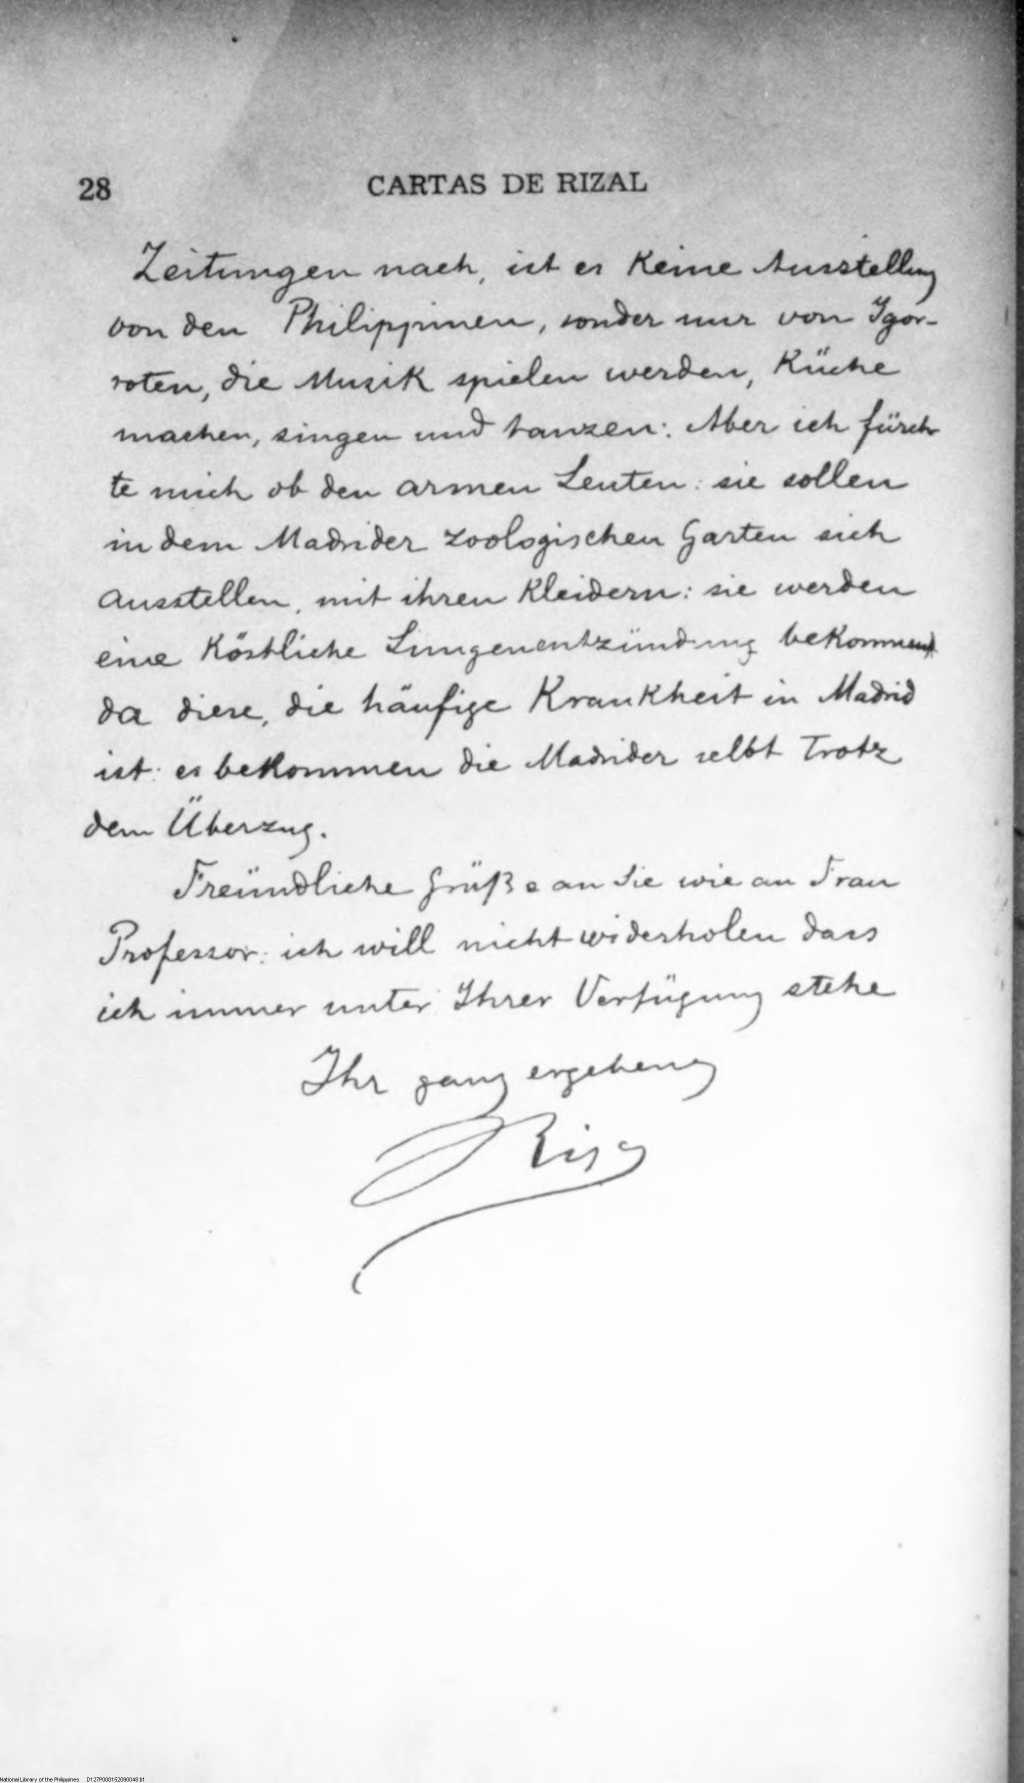 28 CARTAS DE RIZAL
Zeitungen nach, ist es Keine Ausstellung
von den Philippinen, sonder nur von Igor-
roten, die Musik spielen werden, Küche
machen, singen und tanzen: Aber ich fürch-
te mich ob den armen Leuten: sie sollen
in dem Madrider zoologischen Garten sich
ausstellen, mit ihren Kleidern: sie werden
eine Köstliche Lungenentzündung bekommen
da diese, die häufige Krankheit in Madrid
ist: es bekommen die Madrider selbt Trotz
dem Überzug.
Freündliche Grüße an Sie wie an Frau
Professor: ich will nicht widerholen dass
ich immer unter Ihrer Verfügung stehe
Ihr ganz ergebens
National Library of the Philippines